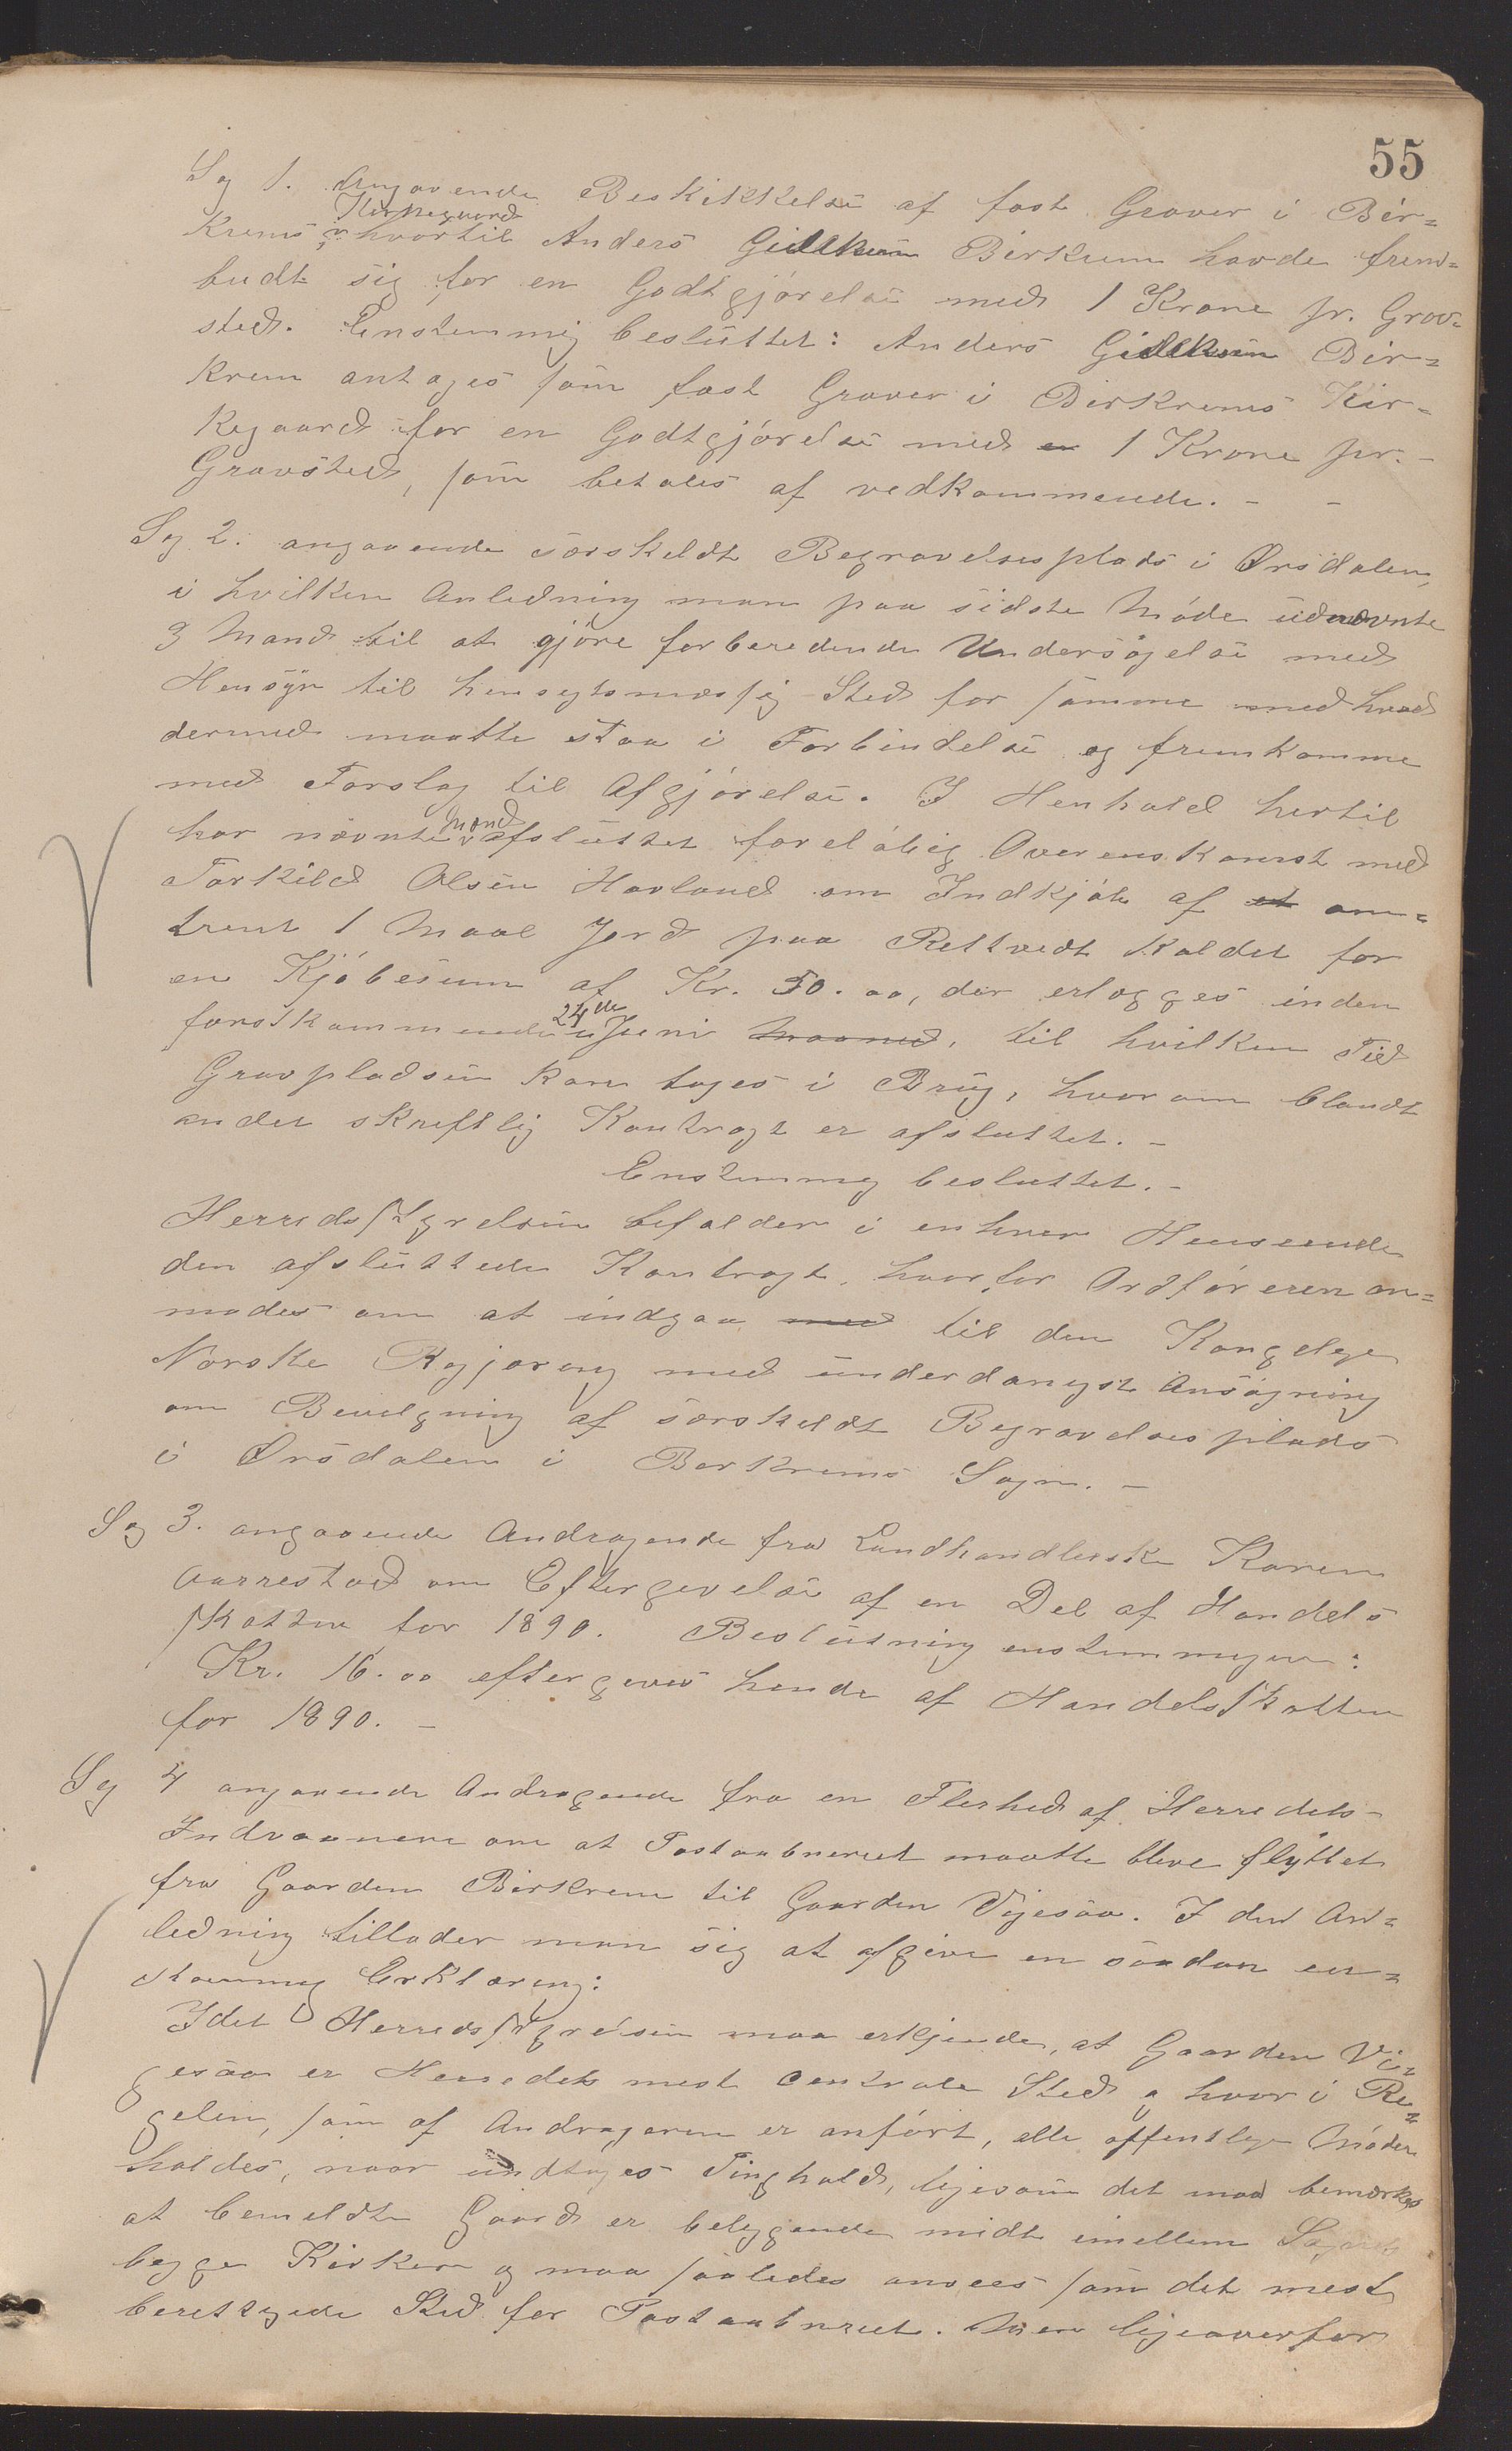 55
Sag 1. Angaaende Beskikkelse af fast Graver i Bir=
Kirkegaard
krems hvortil Anders Birkrem havde frem=
budt sig for en Godtgjørelse med 1 Krone pr. Grav=
sted. Enstemmig besluttet: Anders Bir=
krem antages som fast Graver i Birkrems Kir=
kegaard for en Godtgjørelse med en 1 Krone pr. -
Gravsted, som betales af vedkommende. - -
Sag 2. angaaende særskildt Begravelsesplads i Ørsdalen,
i hvilken Anledning man paa sidste Møde udnævnte
3 Mand til at gjøre forberedende Undersøgelse med
Hensyn til hensigtsmæssig Sted for samme med hvad
dermed maatte staa i Forbindelse og fremkomme
med Forslag til Afgjørelse. I Henhold hertil
Mænd
har nævnte afsluttet foreløbig Overenskomst med
Torkild Olsen Hovland om Indkjøb af et om=
trent 1 Maal Jord paa Rettvedt kaldet for
en Kjøbesum af Kr. 50.00, der erlægges inden
24de
førstkommende Juni Maaned, til hvilken Tid
Gravpladsen kan tages i Brug, hvorom blandt
andet skriftlig Kontragt er afsluttet. -
Enstemmig besluttet. -
Herredsstyrelsen bifalder i enhver Henseende
den afsluttede Kontragt, hvorfor Ordføreren an=
modes om at indgaa med til den Kongelige
Norske Regjering med underdanigst Ansøgning
om Bevilgning af særskildt Begravelsesplads
i Ørsdalen i Berkrems Sogn. -
Sag 3. angaaende Andragende fra Landhandlerske Karen
Aarrestad om Eftergivelse af en Del af Handels
skatten for 1890. Beslutning enstemmigen:
Kr. 16.00 eftergives hende af Handelsskatten
for 1890. -
Sag 4 angaaende Andragende fra en Flerhed af Herredets
Indvaanere om at Postaabneriet maatte blive flyttet
fra Gaarden Birkrem til Gaarden Vigesaa. I den An=
ledning tillader man sig at afgive en saadan en=
stemmig Erklæring:
Idet Herredsstyrelsen maa erkjende, at Gaarden Vi=
gesaa er Herredets mest centrale Sted og hvor i Re=
gelen, som af Andragerne er anført, alle offentlige Møder
holdes, naar undtages Tinghold, ligesom det maa bemærkes
at bemeldte Gaard er beliggende midt imellem Sognets
begge Kirker og maa saaledes ansees som det mest
berettigede Sted for Postaabneriet. Men ligeoverfor